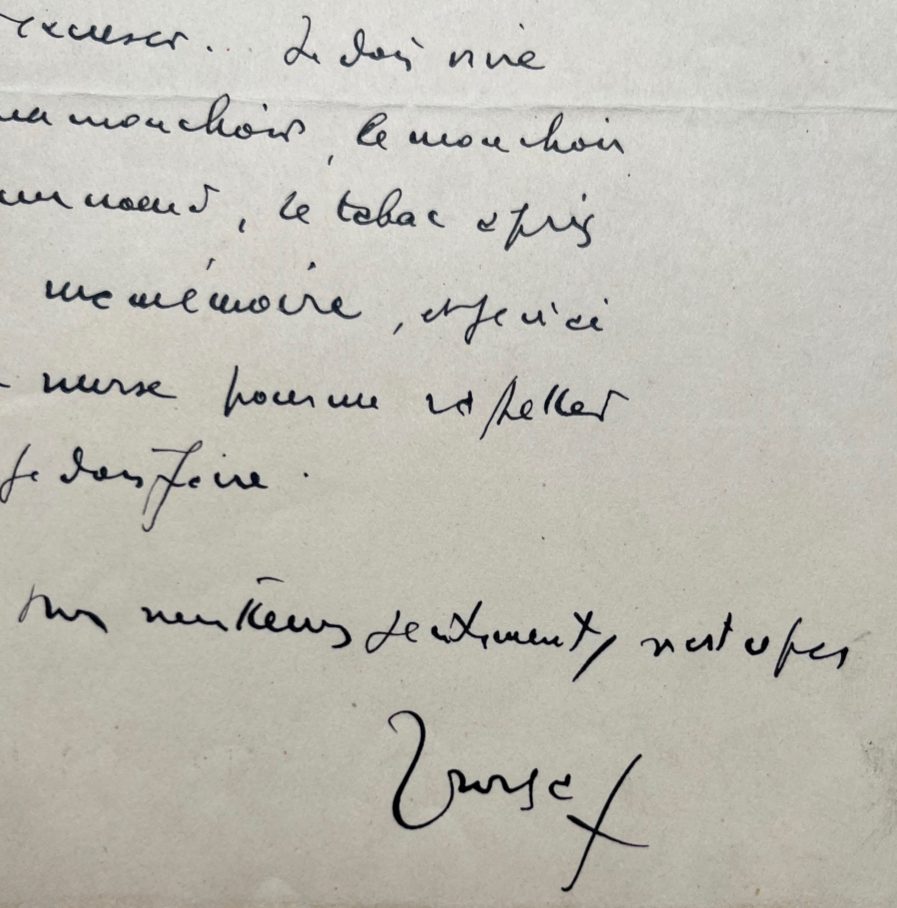 excuser... Je dois vivre
mouchoir, le mouchoir
un noeud, le tabac a pris
ma mémoire, et je n'ai
nurse pour me rappeler
je dois faire.
meilleurs sentiments, n'est a pas